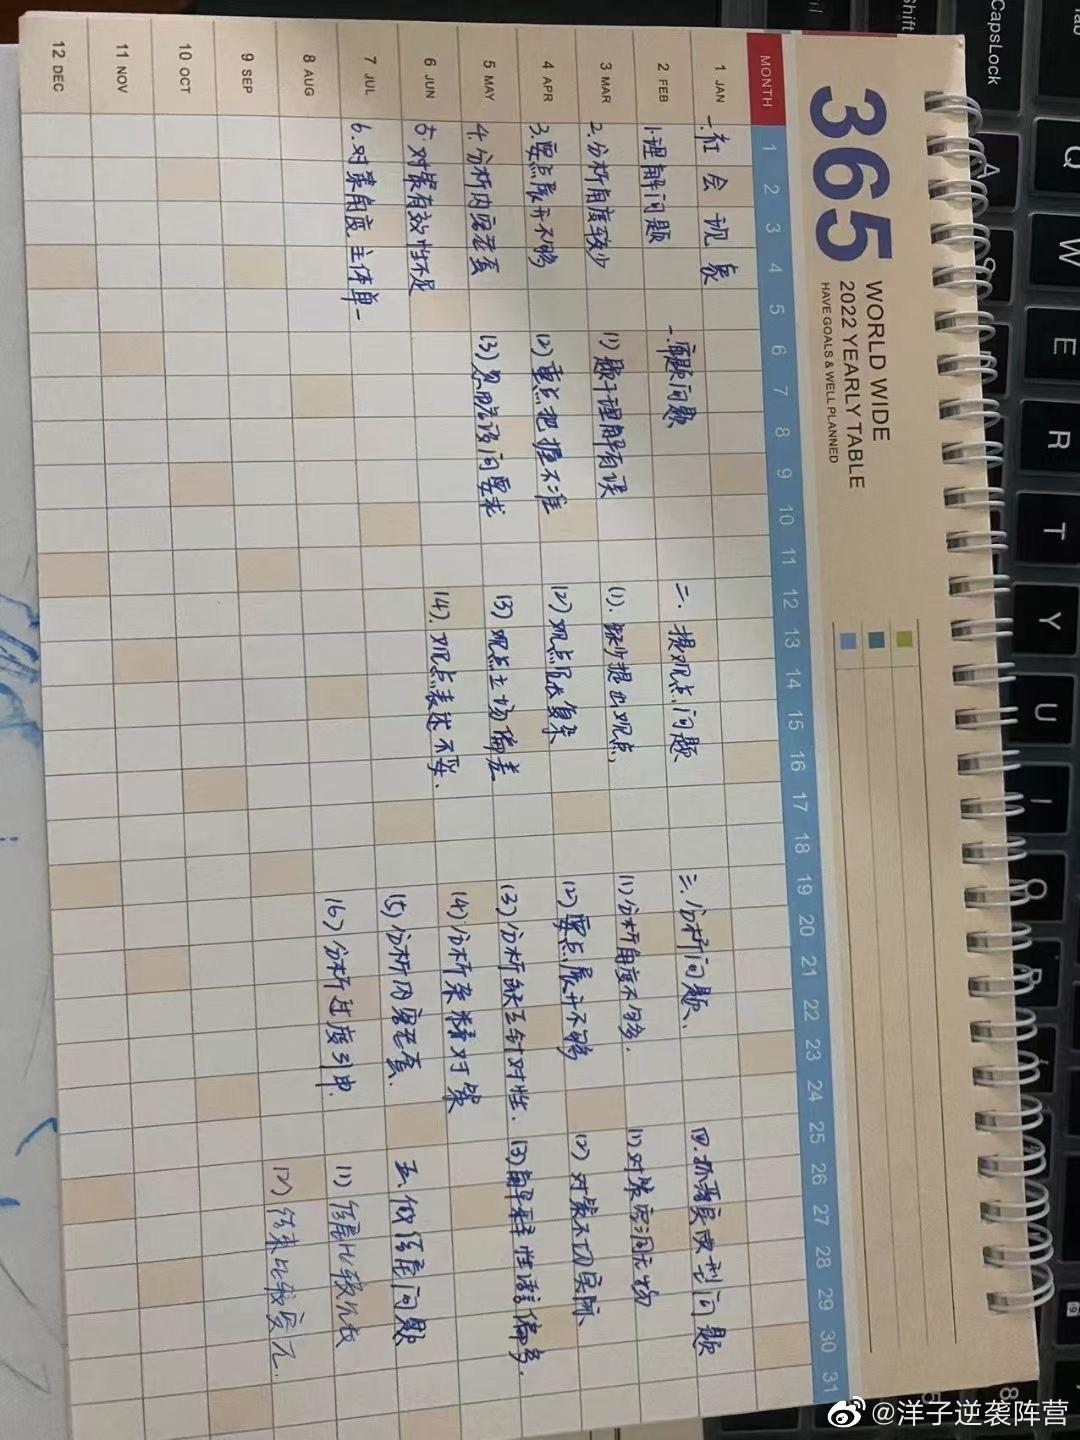 365
WORLD WIDE
2022 YEARLY TABLE
HAVE GOALS & WELL PLANNED
MONTH 1 2 3 4 5 6 7 8 9 10 11 12 13 14 15 16 17 18 19 20 21 22 23 24 25 26 27 28 29 30 31
1 JAN
2 FEB
3 MAR
4 APR
5 MAY
6 JUN
7 JUL
8 AUG
9 SEP
10 OCT
11 NOV
12 DEC
一.社会现象
1.理解问题
2.分析角度较少
3.要点展开不够
4.分析内容老套
5.对策有效性不足
6.对策角度主体单一
一.审题问题
(1)题干理解有误
(2)重点把握不准
(3)忽略设问要求
二.提观点问题
(1).缺少提出观点
(2)观点复杂
(3)观点立场偏差
(4).观点表述不妥.
三.分析问题、
(1)分析角度不够.
(2)要点展开不够
(3)分析缺乏针对性.
(4)分析杂糅对策
(5)分析内容老套.
(6)分析过度引申.
四.抓落实成型问题
(1)对策空洞无物
(2)对策不切实际、
(3)语言偏多.
五做结尾问题
(1)结尾比较
(2)结束比较
CapsLock
Shift
Tab
Q
W
E
R
T
Y
U
I
O
P
A
@洋子逆袭阵营